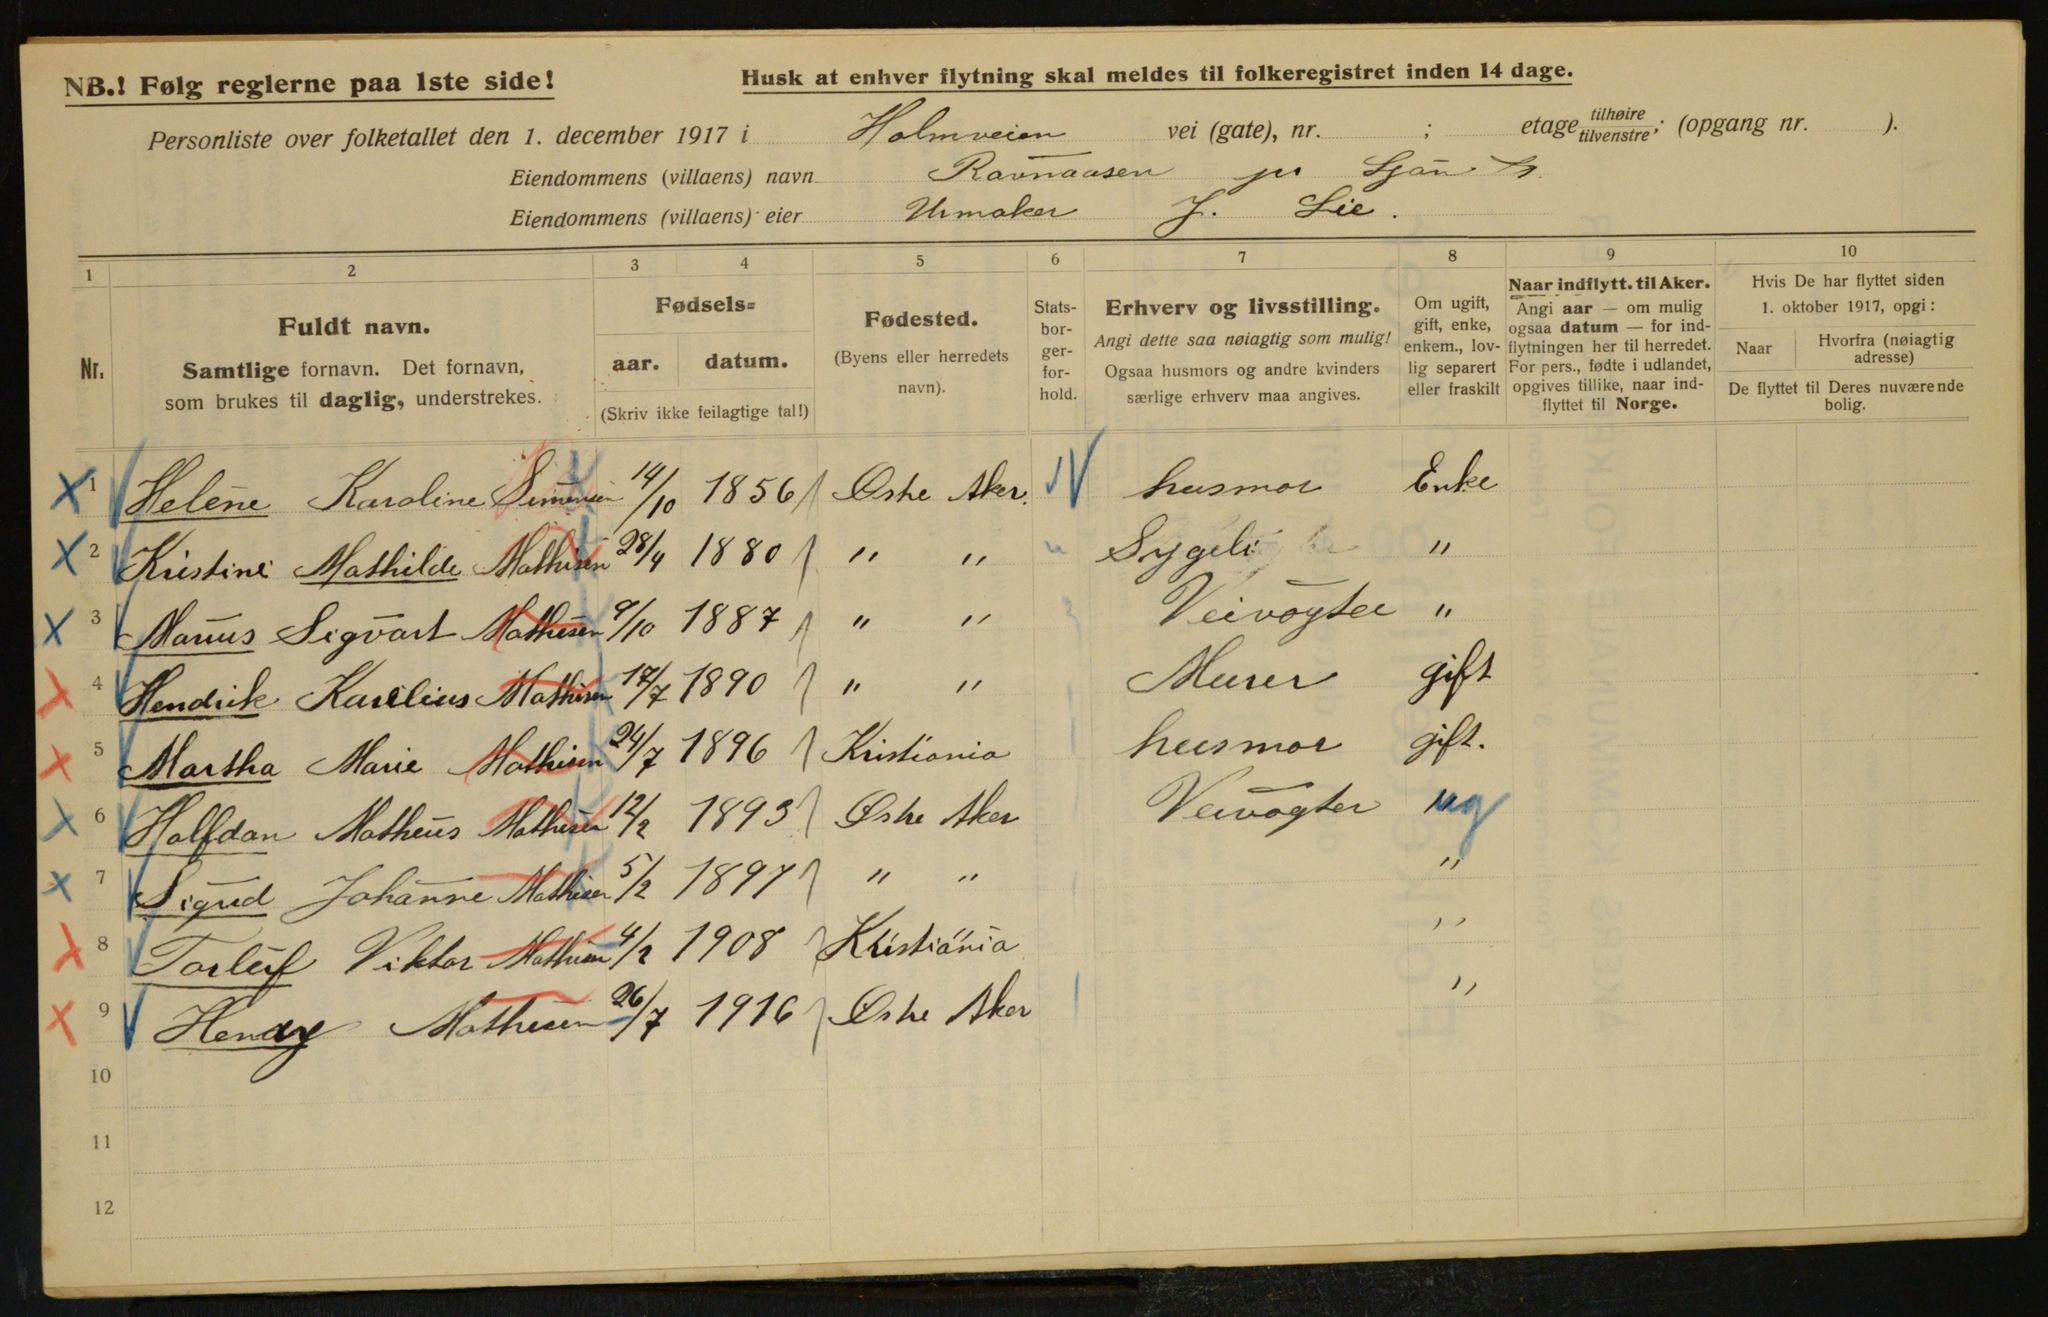 NB.! Følg reglerne paa 1ste side!
Husk at enhver flytning skal meldes til folkeregistret inden 14 dage.
Personliste over folketallet den 1. december 1917 i Holmveien vei (gate), nr. ; etage tilhøire tilvenstre; (opgang nr. ).
Eiendommens (villaens) navn Ravnaasen pr Ljan St
Eiendommens (villaens) eier Urmaker J. Lie.
1 2 3 4 5 6 7 8 9 10
Nr.
Fuldt navn.
Samtlige fornavn. Det fornavn,
som brukes til daglig, understrekes.
Fødsels=
aar. datum.
(Skriv ikke feilagtige tal!)
Fødested.
(Byens eller herredets
navn).
Stats-
bor-
ger-
for-
hold.
Erhverv og livsstilling.
Angi dette saa nøiagtig som mulig!
Ogsaa husmors og andre kvinders
særlige erhverv maa angives.
Om ugift,
gift, enke,
enkem., lov-
lig separert
eller fraskilt
Naar indflytt. til Aker.
Angi aar — om mulig
ogsaa datum — for ind-
flytningen her til herredet.
For pers., fødte i udlandet,
opgives tillike, naar ind-
flyttet til Norge.
Hvis De har flyttet siden
1. oktober 1917, opgi:
Naar
Hvorfra (nøiagtig
adresse)
De flyttet til Deres nuværende
bolig.
1 Helene Karoline Simensen 14/10 1856 Østre Aker. N husmor Enke
2 Kristine Mathilde Mathisen 28/4 1880 " " " Sygeli "
3 Marius Sigvart Mathisen 9/10 1887 " " Veivogter "
4 Hendrik Karelius Mathisen 17/7 1890 " " Murer gift
5 Martha Marie Mathisen 24/7 1896 Kristiania husmor gift.
6 Halfdan Matheus Mathisen 12/2 1893 Østre Aker Veivogter ug
7 Sigrid Johanne Mathisen 5/2 1897 " " "
8 Torleif Viktor Mathisen 4/2 1908 Kristiania "
9 Hendry Mathisen 26/7 1916 Østre Aker "
10
11
12